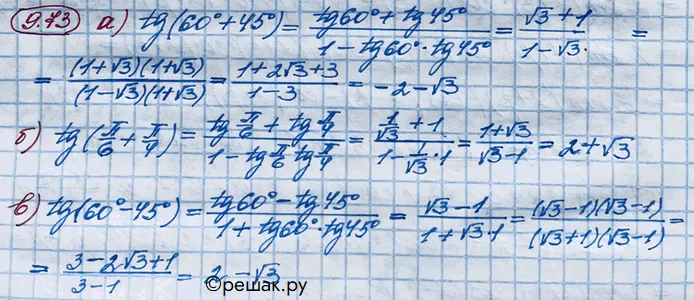 9.73 а) tg(60°+45°) = (tg60°+tg45°)/(1-tg60°·tg45°) = (√3+1)/(1-√3·) =
= ((1+√3)(1+√3))/((1-√3)(1+√3)) = (1+2√3+3)/(1-3) = -2-√3
б) tg(π/6+π/4) = (tg π/6 + tg π/4)/(1-tg π/6 tg π/4) = (1/√3+1)/(1-1/√3·1) = (1+√3)/(√3-1) = 2+√3
в) tg(60°-45°) = (tg60°-tg45°)/(1+tg60°·tg45°) = (√3-1)/(1+√3·1) = ((√3-1)(√3-1))/((√3+1)(√3-1)) =
= (3-2√3+1)/(3-1) = 2-√3
©решак.ру